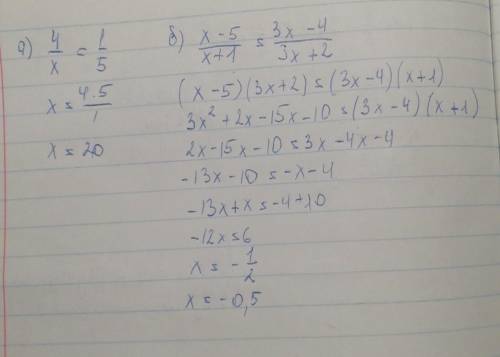 а) 4/x = 1/5
x = 4·5/1
x = 20
б) x-5/x+1 = 3x-4/3x+2
(x-5)(3x+2) = (3x-4)(x+1)
3x²+2x-15x-10 = (3x-4)(x+1)
2x-15x-10 = 3x-4x-4
-13x-10 = -x-4
-13x+x = -4+10
-12x = 6
x = -1/2
x = -0,5